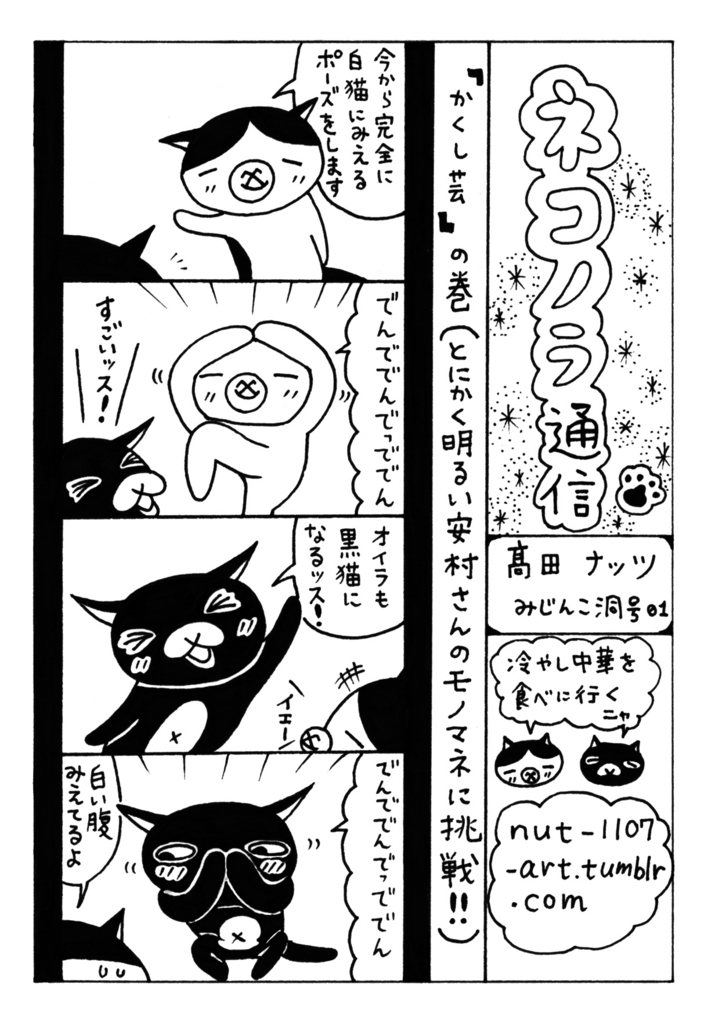 ネコノラ通信
髙田ナッツ
みじんこ洞号01
冷やし中華を
食べに行く
ニャ
nut-1107
-art.tumblr
.com
『かくし芸』の巻(とにかく明るい安村さんのモノマネに挑戦!!)
今から完全に
白猫にみえる
ポーズをします
でんででんでっででん
すごいッス!
オイラも
黒猫に
なるッス!
イエー
でんででんでっででん
白い腹
みえてるよ